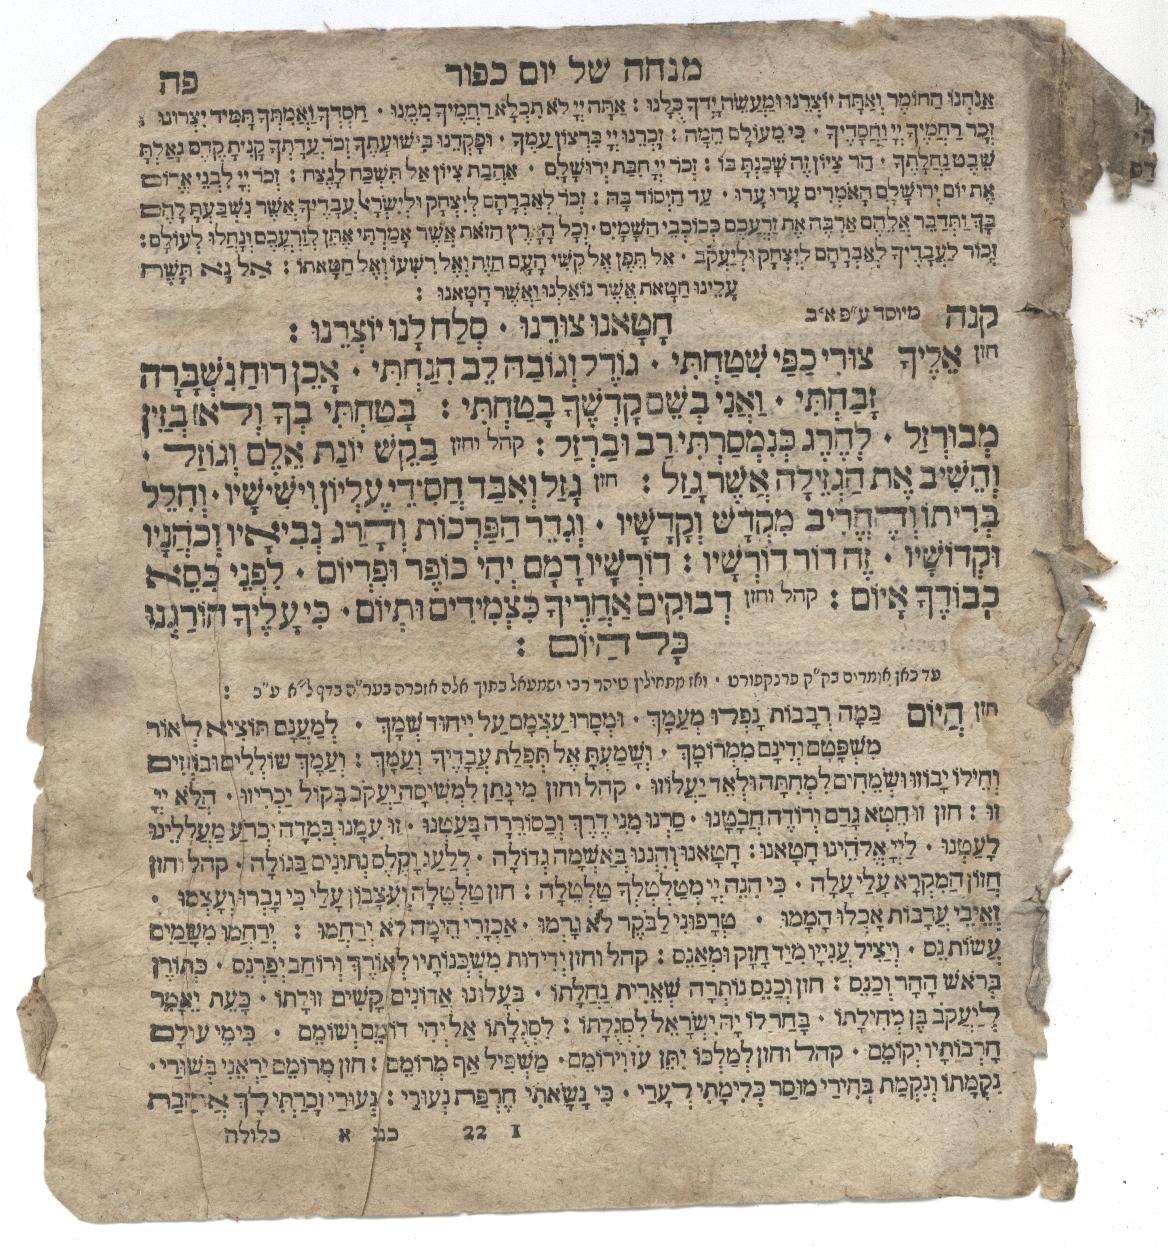 מנחה של יום כפור פה
אֲנַחְנוּ הַחוֹמֶר וְאַתָּה יוֹצְרֵנוּ וּמַעֲשֵׂה יָדְךָ כֻּלָּנוּ : אַתָּה יְיָ לֹא תִכְלָא רַחֲמֶיךָ מִמֶּנּוּ · חַסְדְּךָ וַאֲמִתְּךָ תָּמִיד יִצְּרוּנוּ :
זְכֹר רַחֲמֶיךָ יְיָ וַחֲסָדֶיךָ · כִּי מֵעוֹלָם הֵמָּה : זָכְרֵנוּ יְיָ בִּרְצוֹן עַמֶּךָ · וּפָקְדֵנוּ בִּישׁוּעָתֶךָ זְכֹר עֲדָתְךָ קָנִיתָ קֶדֶם גָּאַלְתָּ
שֵׁבֶט נַחֲלָתֶךָ · הַר צִיּוֹן זֶה שָׁכַנְתָּ בּוֹ : זְכֹר יְיָ חִבַּת יְרוּשָׁלָםִ · אַהֲבַת צִיּוֹן אַל תִּשְׁכַּח לָנֶצַח : זְכֹר יְיָ לִבְנֵי אֱדוֹם
אֶת יוֹם יְרוּשָׁלָםִ הָאֹמְרִים עָרוּ עָרוּ · עַד הַיְסוֹד בָּהּ : זְכֹר לְאַבְרָהָם לְיִצְחָק וּלְיִשְׂרָאֵל עֲבָדֶיךָ אֲשֶׁר נִשְׁבַּעְתָּ לָהֶם
בָּךְ וַתְּדַבֵּר אֲלֵהֶם אַרְבֶּה אֶת זַרְעֲכֶם כְּכוֹכְבֵי הַשָּׁמָיִם · וְכָל הָאָרֶץ הַזֹּאת אֲשֶׁר אָמַרְתִּי אֶתֵּן לְזַרְעֲכֶם וְנָחֲלוּ לְעוֹלָם :
זְכוֹר לַעֲבָדֶיךָ לְאַבְרָהָם לְיִצְחָק וּלְיַעֲקֹב · אַל תֵּפֶן אֶל קְשִׁי הָעָם הַזֶּה וְאֶל רִשְׁעוֹ וְאֶל חַטָּאתוֹ : אַל נָא תָּשֵׁת
עָלֵינוּ חַטָּאת אֲשֶׁר נוֹאַלְנוּ וַאֲשֶׁר חָטָאנוּ :
קנה מיוסד ע״פ א״ב חָטָאנוּ צוּרֵנוּ · סְלַח לָנוּ יוֹצְרֵנוּ :
חזן אֵלֶיךָ צוּרִי כַפַּי שִׁטַּחְתִּי · גּוֹדֶל וְגוֹבַהּ לֵב הִנַּחְתִּי · אָכֵן רוּחַ נִשְׁבָּרָה
זָבַחְתִּי · וַאֲנִי בְּשֵׁם קָדְשֶׁךָ בָטַחְתִּי : בָּטַחְתִּי בְךָ וְלֹא בְזַיִן
מְבוּרְזָל · לַהֶרֶג כְּנִמְסַרְתִּי רַב וּבַרְזֶל : קהל וחזן בַּקֵּשׁ יוֹנַת אֵלֶם וְגוֹזָל ·
וְהֵשִׁיב אֶת הַגְּזֵילָה אֲשֶׁר גָּזָל : חזן גָּזַל וְאִבַּד חֲסִידֵי עֶלְיוֹן וִישִׁישָׁיו · וְחִלֵּל
בְּרִיתוֹ וְהֶחֱרִיב מִקְדָּשׁ וְקָדָשָׁיו · וְגִדֵּר הַפָּרְכוֹת וְהָרַג נְבִיאָיו וְכֹהֲנָיו
וּקְדוֹשָׁיו · זֶה דוֹר דוֹרְשָׁיו : דוֹרְשָׁיו דָּמָם יְהִי כּוֹפֶר וּפִדְיוֹם · לִפְנֵי כִּסֵּא
כְבוֹדֶךָ אָיוֹם : קהל וחזן דְבוּקִים אַחֲרֶיךָ כִּצְמִידִים וּתְיוֹם · כִּי עָלֶיךָ הוֹרַגְנוּ
כָּל הַיּוֹם :
עד כאן אומרים בק״ק פרנקפורט · ואז מתחילין טיהר רבי ישמעאל בתוך אלה אזכרה בער״ה בדף ל״א ע״ב :
חזן הַיּוֹם כַּמָּה רְבָבוֹת נָפְלוּ מֵעַמֶּךָ · וּמָסְרוּ עַצְמָם עַל יִיחוּד שְׁמֶךָ · לְמַעֲנָם תּוֹצִיא לְאוֹר
מִשְׁפָּטָם וְדִינָם מִמְּרוֹמֶךָ · וְשָׁמַעְתָּ אֶל תְּפִלַּת עֲבָדֶיךָ וְעַמֶּךָ : וְעַמְּךָ שׁוֹלְלִים וּבוֹזְזִים
וְחֵילוֹ יָבוֹזוּ וּשְׂמֵחִים לִמְחִתָּה וּלְאֵד יַעֲלוֹזוּ · קהל וחזן מִי נָתַן לִמְשִׁיסָה יַעֲקֹב בְּקוֹל יַכְרִיזוּ · הֲלֹא יְיָ
זוּ : חזן זוּ חֵטְא גָרַם וְרוֹדֶה חֲבָטָנוּ · סַרְנוּ מִנִּי דֶרֶךְ וּכְסוֹרֵרָה בָּעַטְנוּ · זוֹ עָמְנוּ בְּמִדָּה כְּרֹעַ מַעֲלָלֵינוּ
לַעֲטָנוּ · לַיְיָ אֱלֹהֵינוּ חָטָאנוּ : חָטָאנוּ וְהִנְנוּ בְּאַשְׁמָה גְדוֹלָה · לְלַעַג וָקֶלֶס נְתוּנִים בַּגּוֹלָה · קהל וחזן
חֲזוֹן הַמִּקְרָא עָלַי עָלָה · כִּי הִנֵּה יְיָ מְטַלְטֶלְךָ טַלְטֵלָה : חזן טַלְטֵלָה וְעִצָּבוֹן עָלַי כִּי גָבְרוּ וְעָצְמוּ ·
זְאֵיבֵי עֲרָבוֹת אֲכָלוּ הֲמָמוּ · טְרָפוּנִי לַבֹּקֶר לֹא גָרְמוּ · אַכְזָרֵי הֵימָה לֹא יְרַחֲמוּ : יְרַחֲמוּ מִשָּׁמַיִם
עֲשׂוֹת נֵס · וְיַצִּיל עֲנִיָּיו מִיַּד חָזָק וּמְאַנֵּס : קהל וחזן יְדִידוּת מִשְׁכְּנוֹתָיו לְאוֹרֶךְ וְרוֹחַב יְפַרְנֵס · כַּתּוֹרֶן
בְּרֹאשׁ הָהָר וְכַנֵּס : חזן וְכַנֵּס נוֹתְרָה שְׁאֵרִית נַחֲלָתוֹ · בְּעָלוּנוּ אֲדוֹנִים קָשִׁים זוּלָתוֹ · כָּעֵת יֵאָמֵר
לְיַעֲקֹב בֶּן מְחִילָתוֹ · בָּחַר לוֹ יָהּ יִשְׂרָאֵל לִסְגֻלָּתוֹ : לִסְגֻלָּתוֹ אַל יְהִי דוֹמֵם וְשׁוֹמֵם · כִּימֵי עוֹלָם
חָרְבוֹתָיו יְקוֹמֵם · קהל וחזן לְמַלְכּוֹ יִתֵּן עֹז וִירוֹמֵם · מַשְׁפִּיל אַף מְרוֹמֵם : חזן מְרוֹמֵם יַרְאֵנִי בְּשׁוּרִי ·
נִקְמָתוֹ וְנִקְמַת בְּחִירֵי מוּסַר כְּלִימָתִי לְעָרַי · כִּי נָשָׂאתִי חֶרְפַּת נְעוּרָי : נְעוּרַי זָכַרְתִּי לָךְ אַהֲבַת
I 22 כב א כלולה